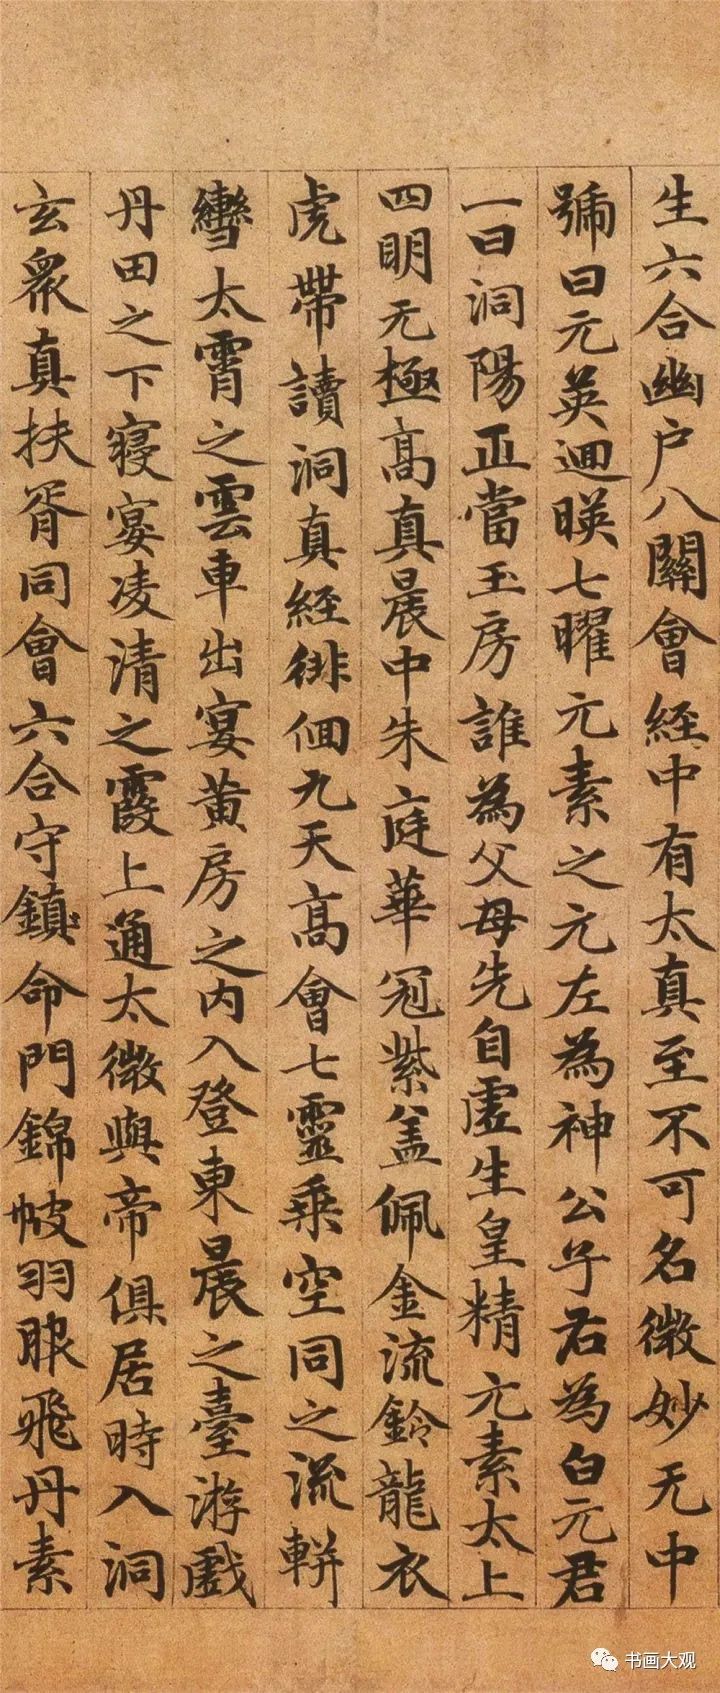 生六合幽户八關會經中有太真至不可名微妙无中
號曰元英迴暎七曜元素之元左為神公子右為白元君
一曰洞陽正當玉房誰為父母先自虛生皇精元素太上
四明元極高真晨中朱庭華冠紫盖佩金流鈴龍衣
虎帶讀洞真經徘佪九天高會七靈乗空同之流軿
轡太霄之雲車出宴黄房之内入登東晨之臺游戲
丹田之下寢宴凌清之霞上通太微與帝俱居時入洞
玄衆真扶胥同會六合守鎮命門錦帔羽服飛丹素
书画大观